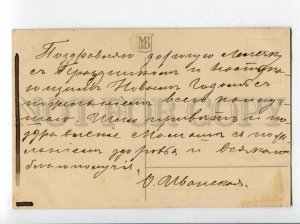 Поздравляю дорогую
съ Праздникомъ и Наступа
ющимъ Новымъ Годомъ съ
пожеланіемъ всего
шаго привѣтъ и по
здравленіе Мамамъ съ по
желаніемъ здоровья и всякаго
благополучія.
О. Иванская.